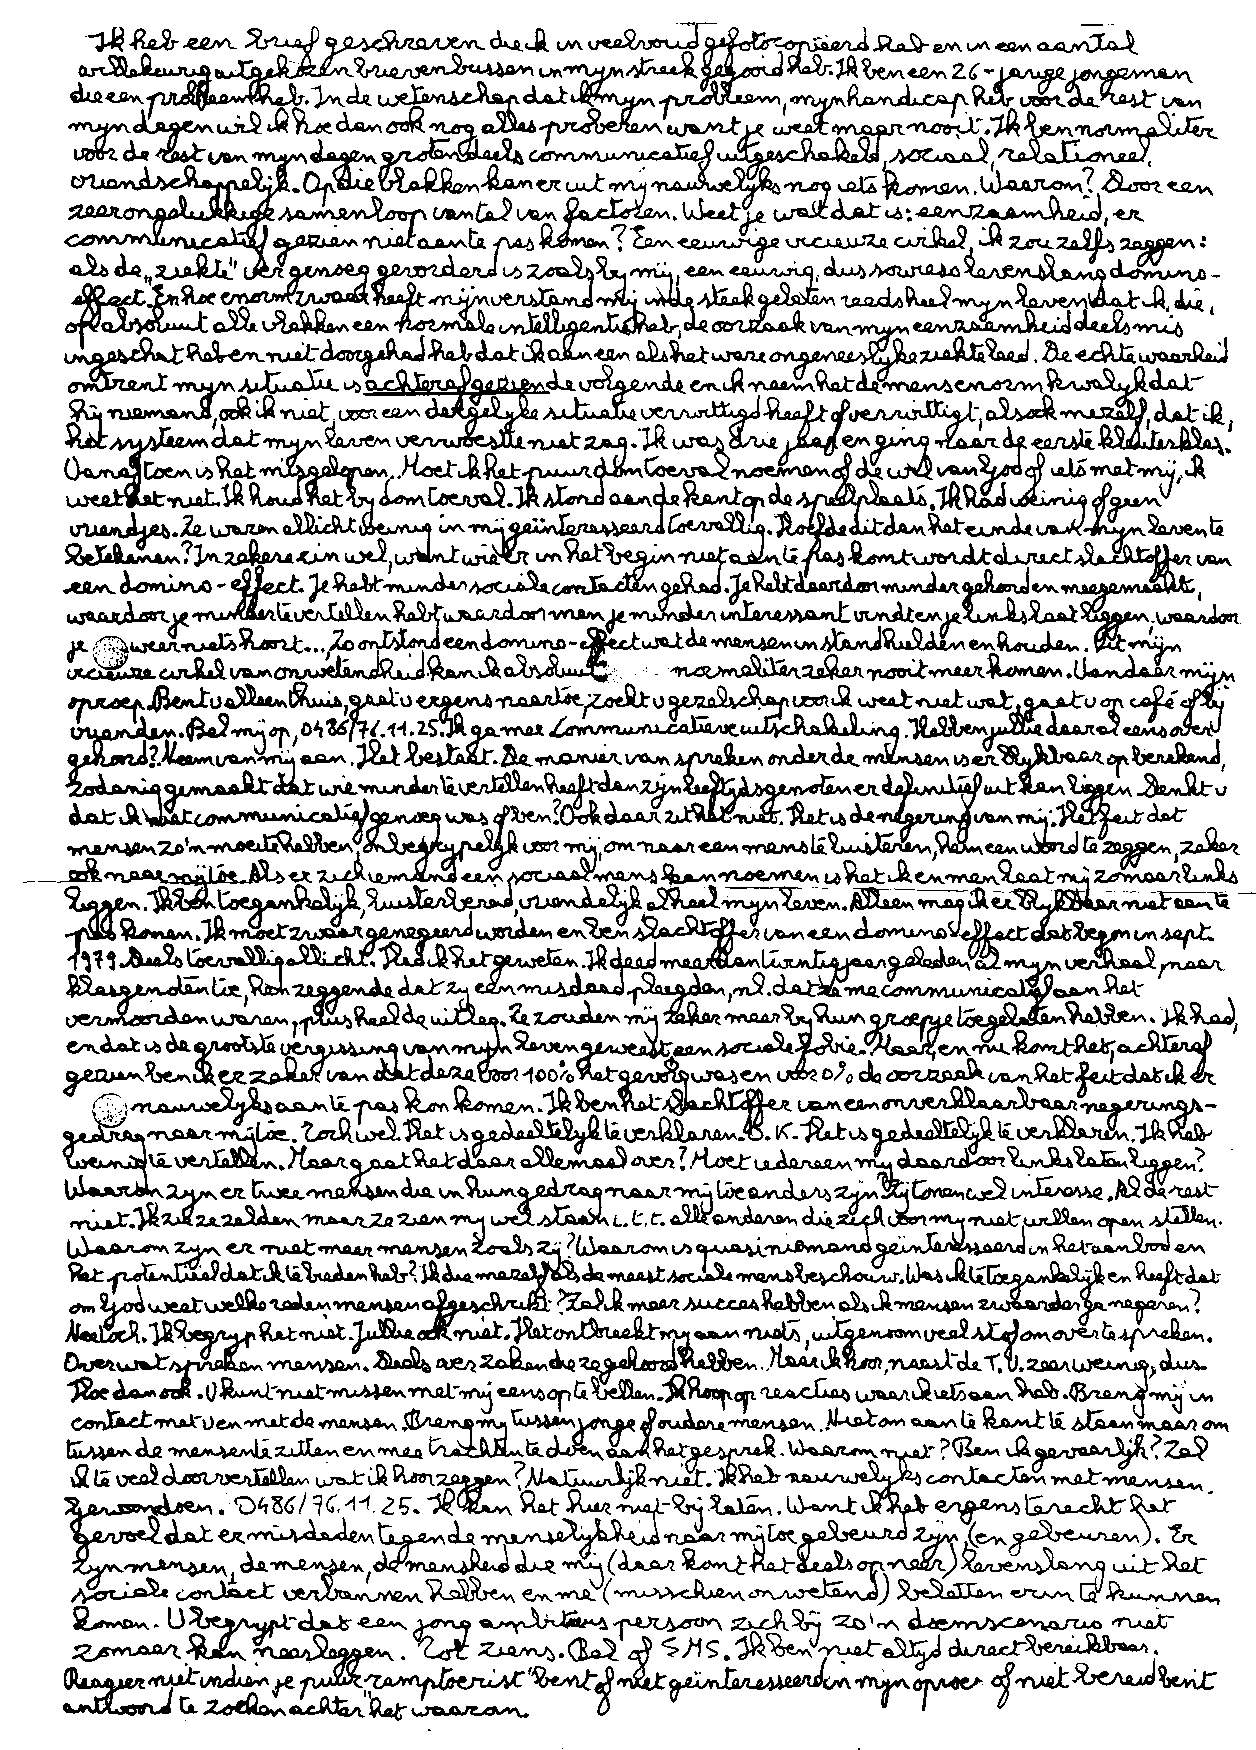 Ik heb een brief geschreven die ik in veelvoud gefotocopieerd heb en in een aantal
willekeurig uitgekozen brievenbussen in mijn streek gegooid heb. Ik ben een 26-jarige jongeman
die een probleem heb. In de wetenschap dat ik mijn probleem, mijn handicap heb voor de rest van
mijn dagen wil ik hoe dan ook nog alles proberen want je weet maar nooit. Ik ben normaliter
voor de rest van mijn dagen grotendeels communicatief uitgeschakeld, sociaal, relationeel,
vriendschappelijk. Op die vlakken kan er uit mij nauwelijks nog iets komen. Waarom? Door een
zeer ongelukkige samenloop van tal van factoren. Weet je wat dat is: eenzaamheid, er
communicatief gezien niet aan te pas komen? Een eeuwige vicieuze cirkel, ik zou zelfs zeggen:
als de „ziekte" ver genoeg gevorderd is zoals bij mij, een eeuwig, dus sowieso levenslang domino-
effect. En hoe enorm zwaar heeft mijn verstand mij in de steek gelaten reeds heel mijn leven dat ik, die,
op absoluut alle vlakken een normale intelligentie heb, de oorzaak van mijn eenzaamheid deels mis
ingeschat heb en niet doorgehad heb dat ik aan een als het ware ongeneeslijke ziekte leed. De echte waarheid
omtrent mijn situatie is achteraf gezien de volgende en ik neem het de mens enorm kwalijk dat
hij niemand, ook ik niet, voor een dergelijke situatie verwittigd heeft of verwittigt, alsook mezelf, dat ik,
het systeem dat mijn leven verwoestte niet zag. Ik was drie jaar en ging naar de eerste kleuterklas.
Vanaf toen is het misgelopen. Moet ik het puur dom toeval noemen of de wil van God of iets met mij, ik
weet het niet. Ik houd het bij dom toeval. Ik stond aan de kant op de speelplaats. Ik had weinig of geen
vriendjes. Ze waren allicht weinig in mij geïnteresseerd toevallig. Hoefde dit dan het einde van mijn leven te
betekenen? In zekere zin wel, want wie er in het begin niet aan te pas komt wordt direct slachtoffer van
een domino-effect. Je hebt minder sociale contacten gehad. Je hebt daardoor minder gehoord en meegemaakt,
waardoor je minder te vertellen hebt waardoor men je minder interessant vindt en je links laat liggen, waardoor
je weer niets hoort... Zo ontstond een domino-effect wat de mensen in stand hielden en houden. Uit mijn
vicieuze cirkel van onwetendheid kan ik absoluut normaliter zeker nooit meer komen. Vandaar mijn
oproep. Bent u alleen thuis, gaat u ergens naartoe, zoekt u gezelschap voor ik weet niet wat, gaat u op café of bij
vrienden. Bel mij op, 0486/76.11.25. Ik ga mee. Communicatieve uitschakeling. Hebben jullie daar al eens over
gehoord? Neem van mij aan. Het bestaat. De manier van spreken onder de mensen is er blijkbaar op berekend,
zodanig gemaakt dat wie minder te vertellen heeft dan zijn leeftijdsgenoten er definitief uit kan liggen. Denkt u
dat ik niet communicatief genoeg was of ben? Ook daar zit het niet. Het is de negering van mij. Het feit dat
mensen zo'n moeite hebben, onbegrijpelijk voor mij, om naar een mens te luisteren, hem een woord te zeggen, zeker
ook naar mij toe. Als er zich iemand een sociaal mens kan noemen is het ik en men laat mij zomaar links
liggen. Ik ben toegankelijk, luisterbereid, vriendelijk al heel mijn leven. Alleen mag ik er blijkbaar niet aan te
pas komen. Ik moet zwaar genegeerd worden en ben slachtoffer van een domino-effect dat begon in sept.
1979. Deels toevallig allicht. Had ik het geweten. Ik deed meer dan twintig jaar geleden al mijn verhaal, naar
klasgenoten toe, hen zeggende dat zij een misdaad pleegden, nl. dat ze me communicatief aan het
vermoorden waren, plus heel de uitleg. Ze zouden mij zeker meer bij hun groepje toegelaten hebben. Ik had,
en dat is de grootste vergissing van mijn leven geweest, een sociale fobie. Maar, en nu komt het, achteraf
gezien ben ik er zeker van dat deze voor 100% het gevolg was en voor 0% de oorzaak van het feit dat ik er
nauwelijks aan te pas kon komen. Ik ben het slachtoffer van een onverklaarbaar negerings-
gedrag naar mij toe. Toch wel. Het is gedeeltelijk te verklaren. O.K. Het is gedeeltelijk te verklaren. Ik heb
weinig te vertellen. Maar gaat het daar allemaal over? Moet iedereen mij daardoor links laten liggen?
Waarom zijn er twee mensen die in hun gedrag naar mij toe anders zijn? Zij tonen wel interesse. Al de rest
niet. Ik zie ze zelden maar ze zien mij wel staan i.t.t. alle anderen die zich voor mij niet willen open stellen.
Waarom zijn er niet meer mensen zoals zij? Waarom is quasi niemand geïnteresseerd in het aanbod en
het potentieel dat ik te bieden heb? Ik die mezelf als de meest sociale mens beschouw. Was ik te toegankelijk en heeft dat
om God weet welke reden mensen afgeschrikt? Zal ik meer succes hebben als ik mensen zwaarder ga negeren?
Nee toch. Ik begrijp het niet. Jullie ook niet. Het ontbreekt mij aan niets, uitgenomen veel stof om over te spreken.
Over wat spreken mensen. Deels over zaken die ze gehoord hebben. Maar ik hoor, naast de T.V. zeer weinig, dus.
Hoe dan ook. U kunt niet missen met mij eens op te bellen. Ik hoop op reacties waar ik iets aan heb. Breng mij in
contact met u en met de mensen. Breng mij tussen jonge of oudere mensen. Niet om aan te kant te staan maar om
tussen de mensen te zitten en mee trachten te doen aan het gesprek. Waarom niet? Ben ik gevaarlijk? Zal
ik te veel doorvertellen wat ik hoor zeggen? Natuurlijk niet. Ik heb nauwelijks contacten met mensen.
Gewoon doen. 0486/76.11.25. Ik kan het hier niet bij laten. Want ik heb ergens terecht het
gevoel dat er misdaden tegen de menselijkheid naar mij toe gebeurd zijn, (en gebeuren). Er
zijn mensen, de mensen, de mensheid die mij (daar komt het deels op neer) levenslang uit het
sociale contact verbannen hebben en me (misschien onwetend) beletten erin te kunnen
komen. U begrijpt dat een jong ambitieus persoon zich bij zo'n doemscenario niet
zomaar kan neerleggen. Tot ziens. Bel of SMS. Ik ben niet altijd direct bereikbaar.
Reageer niet indien je puur „ramptoerist" bent of niet geïnteresseerd in mijn oproep of niet bereid bent
antwoord te zoeken achter het waarom.